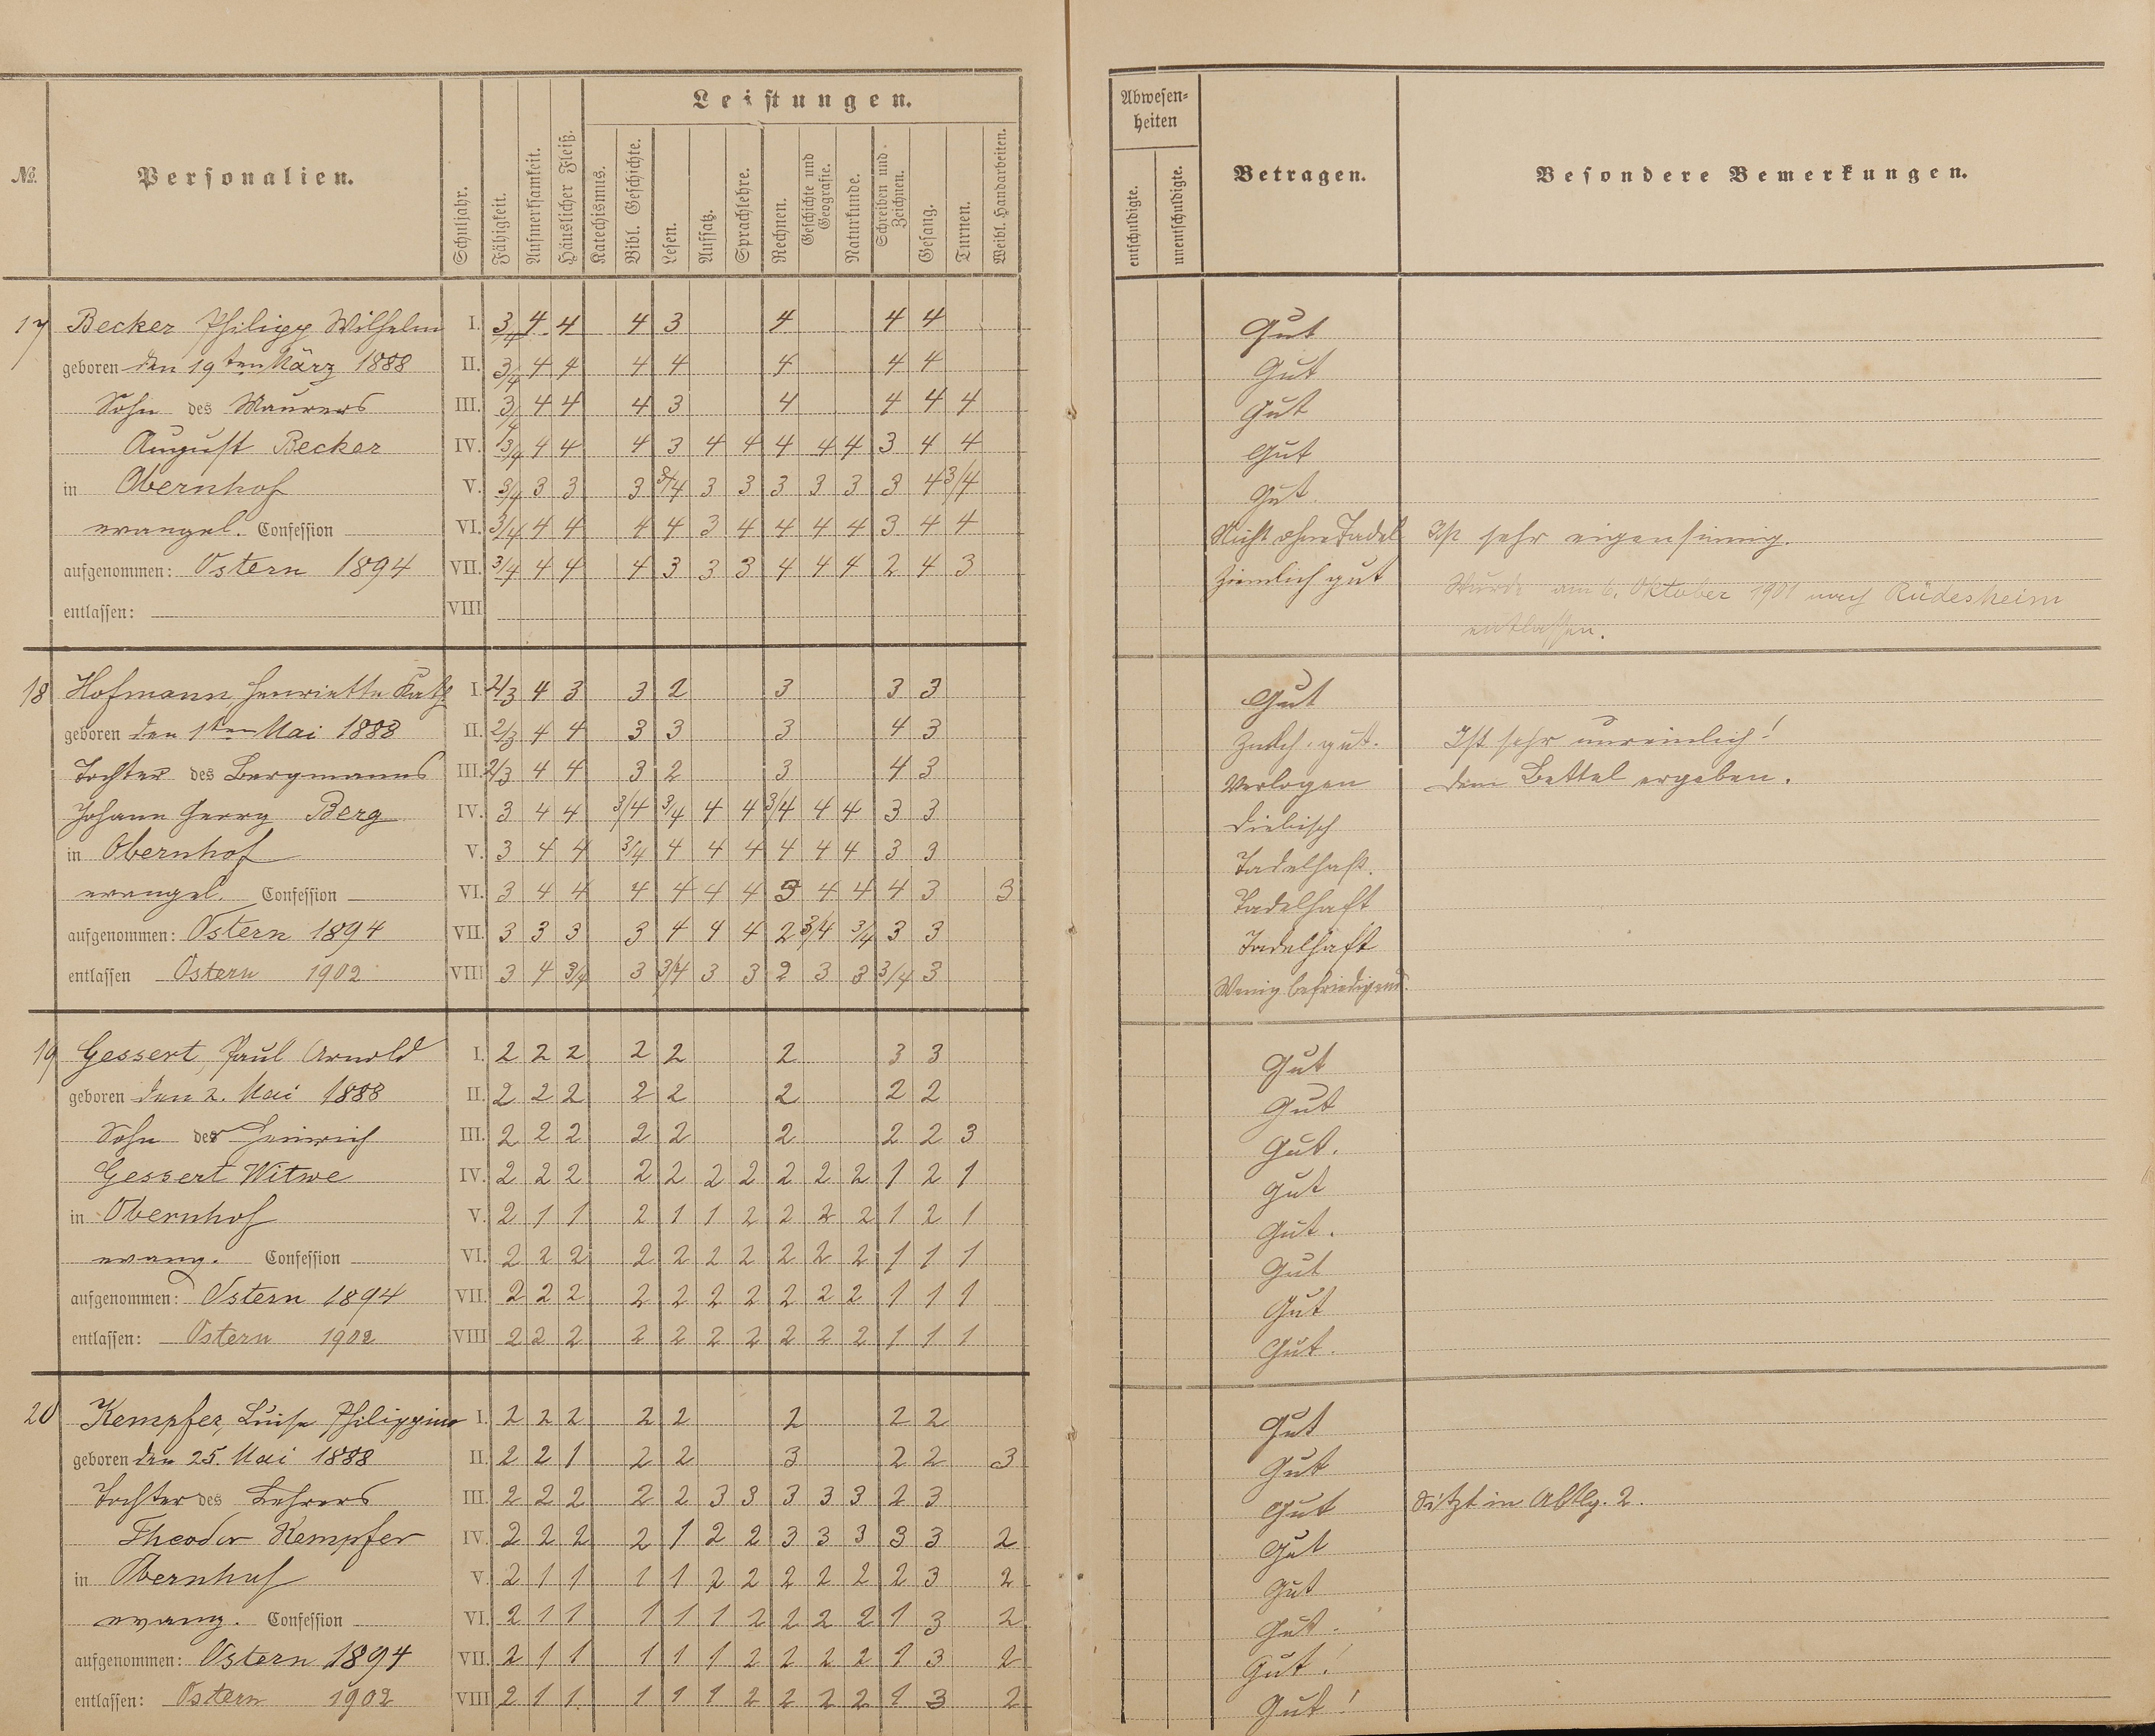 Leistungen.
Abwesen-
heiten
№. Personalien. Schuljahr. Fähigkeit. Aufmerksamkeit. Häuslicher Fleiß. Katechismus. Bibl. Geschichte. Lesen. Aufsatz. Sprachlehre. Rechnen. Geschichte und Geografie. Naturkunde. Schreiben und Zeichnen. Gesang. Turnen. Weibl. Handarbeiten. entschuldigte. unentschuldigte. Betragen. Besondere Bemerkungen.
17 Becker Philipp Wilhelm I. 3/4 4 4 4 3 4 4 4 Gut
geboren den 19ten März 1888 II. 3/4 4 4 4 4 4 4 4 Gut
Sohn des Maurers III. 3/4 4 4 4 3 4 4 4 4 Gut
August Becker IV. 3/4 4 4 4 3 4 4 4 4 4 3 4 4 Gut
in Obernhof V. 3/4 3 3 3 3/4 3 3 3 3 3 3 4 3/4 Gut
evangel. Confession VI. 3/4 4 4 4 4 3 4 4 4 4 3 4 4 Nicht ohne Tadel Ist sehr eigensinnig.
aufgenommen: Ostern 1894 VII. 3/4 4 4 4 3 3 3 4 4 4 2 4 3 Ziemlich gut Wurde am 6. Oktober 1901 nach Rüdesheim
entlassen: VIII entlassen.
18 Hofmann, Henriette Kath I. 2/3 4 3 3 2 3 3 3 Gut
geboren den 1ten Mai 1888 II. 2/3 4 4 3 3 3 4 3 gut. Ist sehr unreinlich!
Tochter des Bergmanns III. 2/3 4 4 3 2 3 4 3 Verlogen dem Bettel ergeben.
Johann Georg Berg IV. 3 4 4 3/4 3/4 4 4 3/4 4 4 3 3 diebisch
in Obernhof V. 3 4 4 3/4 4 4 4 4 4 4 3 3 Tadelhaft.
evangel. Confession VI. 3 4 4 4 4 4 4 3 4 4 4 3 3 Tadelhaft
aufgenommen: Ostern 1894 VII. 3 3 3 3 4 4 4 2 3/4 3/4 3 3 Tadelhaft
entlassen Ostern 1902 VIII 3 4 3/4 3 3/4 3 3 2 3 3 3/4 3 Wenig befriedigend.
19 Gessert, Paul Arnold I. 2 2 2 2 2 2 3 3 Gut
geboren den 2. Mai 1888 II. 2 2 2 2 2 2 2 2 Gut
Sohn der Heinrich III. 2 2 2 2 2 2 2 2 3 Gut.
Gessert Witwe IV. 2 2 2 2 2 2 2 2 2 2 1 2 1 Gut
in Obernhof V. 2 1 1 2 1 1 2 2 2 2 1 2 1 Gut.
evang. Confession VI. 2 2 2 2 2 2 2 2 2 2 1 1 1 Gut
aufgenommen: Ostern 1894 VII. 2 2 2 2 2 2 2 2 2 2 1 1 1 Gut
entlassen: Ostern 1902 VIII 2 2 2 2 2 2 2 2 2 2 1 1 1 Gut.
20 Kempfer, Luise Philippine I. 2 2 2 2 2 2 2 2 Gut
geboren den 25. Mai 1888 II. 2 2 1 2 2 3 2 2 3 Gut
Tochter des Lehrers III. 2 2 2 2 2 3 3 3 3 3 2 3 Gut Sitzt in Abtlg. 2.
Theodor Kempfer IV. 2 2 2 2 1 2 2 3 3 3 3 3 2 Gut
in Obernhof V. 2 1 1 1 1 2 2 2 2 2 2 3 2 Gut
evang. Confession VI. 2 1 1 1 1 1 2 2 2 2 1 3 2 Gut.
aufgenommen: Ostern 1894 VII. 2 1 1 1 1 1 2 2 2 2 1 3 2 Gut!
entlassen: Ostern 1902 VIII 2 1 1 1 1 1 2 2 2 2 1 3 2 Gut!